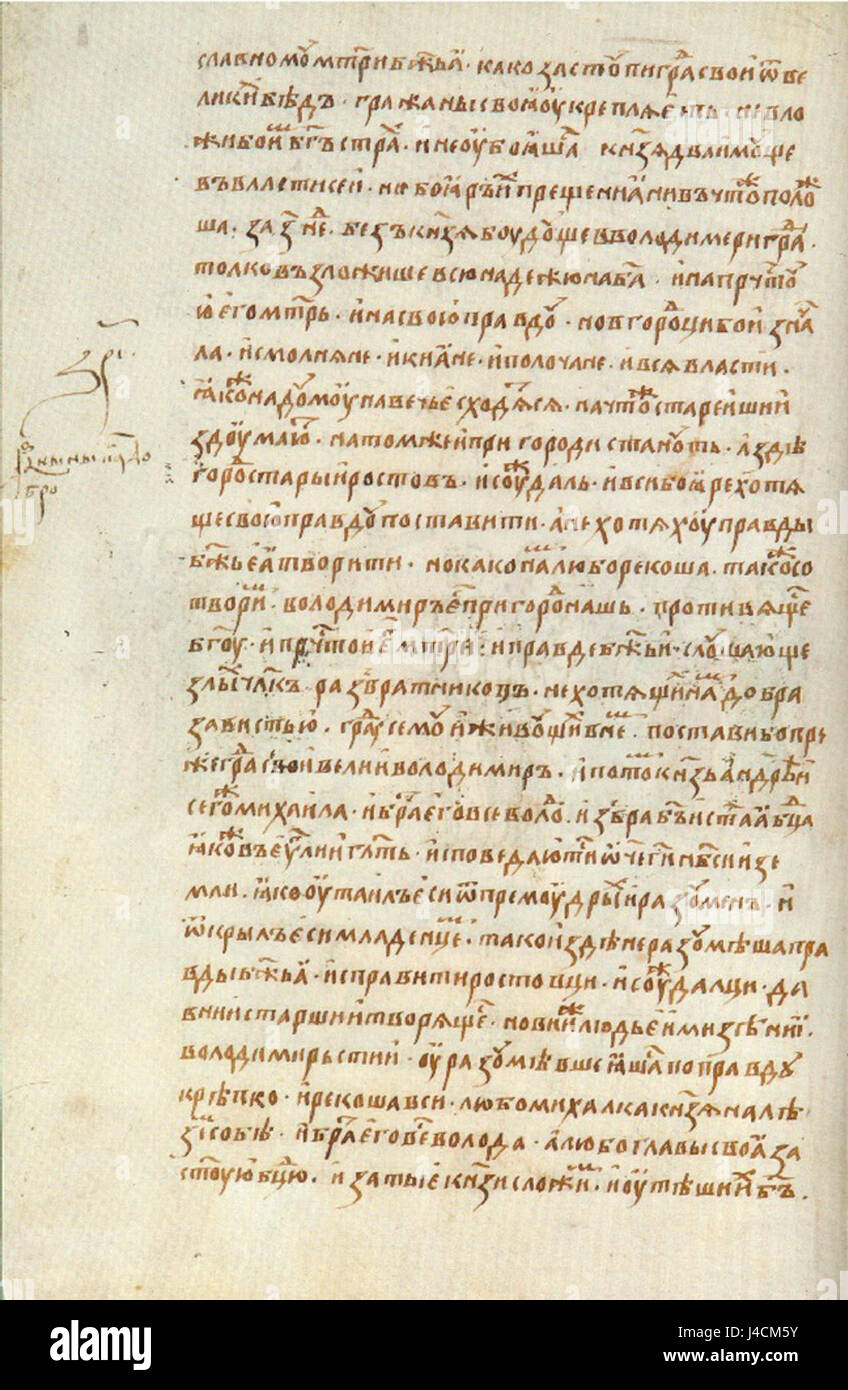 славномоу мт҃ри бж҃ьꙗ · како застоупи гра҃ свои ѿ ве
ликии бѣдъ · гражаны своꙗ оукреплѧеть · не вло
жи бо им̑ бг҃ъ стра҃ · и не оубоꙗша҃ кнѧзѧ два имоуще
въ власти сеи · ни боꙗръ и҃ прещениꙗ ни въ что҃ положи
ша · за з҃ не҃ · безъ кн҃зѧ боудоуще в володимери гра҃ ·
толко възложише всю надежю на ба҃ · и на прчтоу
ю его мт҃рь · и на свою правдоу · новгородци бо изнача
ла · и смолнѧне · и киꙗне · и полочане · и всѧ власти ·
ꙗко на доумоу на вечье сходѧсѧ · на что старейшии
здоумаю · на том же и пригороди станоуть · а здѣ
горо҃ старыи ростовъ · и соуждаль · и вси боꙗре хотѧ
ще свою правдоу поставити · а не хотѧхоу правды
бж҃ьеꙗ творити · но како на҃ любо рекоша · тако со
твори҃ · володимиръ е҃ пригоро҃ нашь · противѧще
бг҃оу · и прч҃тои е҃ мт҃ри · и правде бж҃ьи · слоушающе
злы҃ чл҃къ развратниковъ · не хотѧщи҃ на҃ добра
завистью · градоу семоу и живоущи҃ в не҃ · поставиъ о пре
же гра҃ свои велии володимиръ · и пото҃ кн҃зь андрѣи
сего҃ михаила · и бра҃ его всеволо҃ · избра бъ҃ и ст҃аꙗ бц҃а
ꙗко въ еу҃лии гл҃ть · исповедаю ти ѿче҃ ги҃ нб҃си и зе
мли · ꙗко оутаилъ еси ѿ премоудры҃ и разоумен · и
ѿкрылъ еси младенце҃ · тако и здѣ не разоумѣша пра
вды бж҃ьꙗ · исправити ростовци · и соуждалци · да
внии старшии творѧще҃ · новии людье и мизѣнии҃ ·
володимирьстии · оуразоумѣвше ꙗша҃ по правдоу
крѣпко · и рекоша вси · любо михалка кн҃зѧ налѣ
зе҃ собѣ · и бра҃ его все҃волода · а любо главы своꙗ за
ст҃оую бц҃ю · и за ты е кн҃зи сложи҃ · и оутѣши и҃ бъ҃ ·